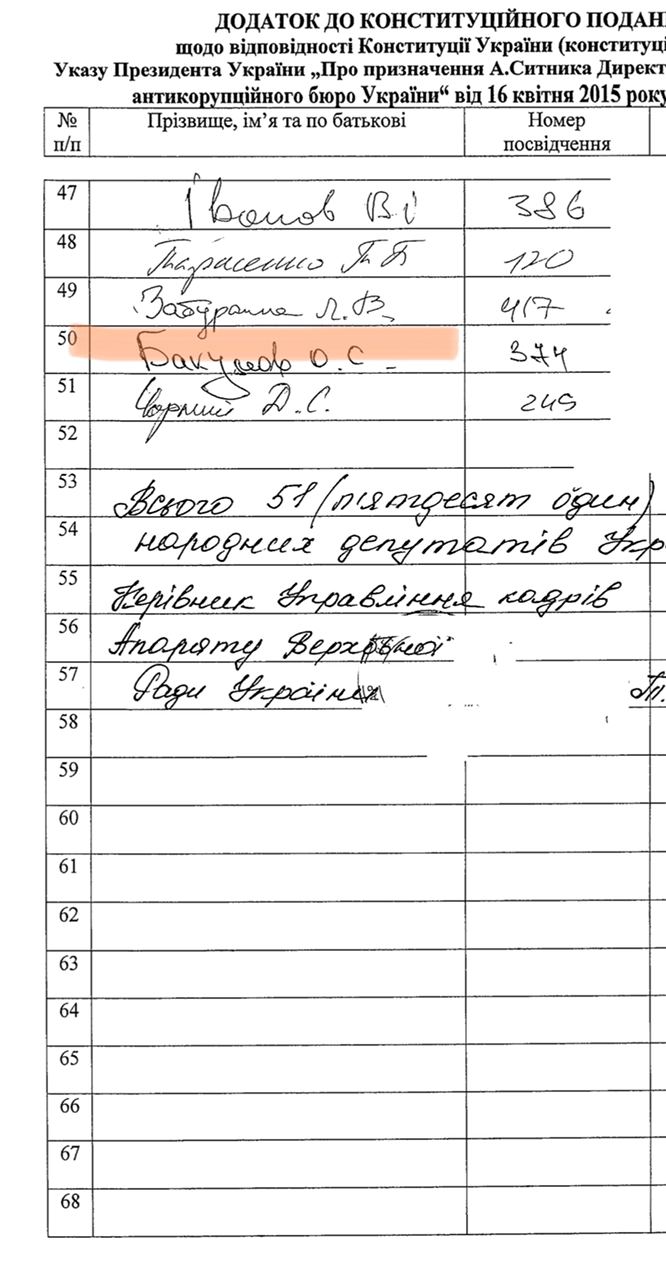 ДОДАТОК ДО КОНСТИТУЦІЙНОГО ПОДАН
щодо відповідності Конституції України (конституці
Указу Президента України „Про призначення А.Ситника Дирек
антикорупційного бюро України“ від 16 квітня 2015 року
№ п/п Прізвище, ім’я та по батькові Номер посвідчення
47 Іванов В.І 386
48 Тарасенко Т П 120
49 Забуранна Л.В. 417
50 О.С. 374
51 Чорний Д.С. 249
52
53 Всього 51 (п'ятдесят один)
54 народних депутатів Укр
55 Керівник Управління кадрів
56 Апарату Верховної
57 Ради України П.
58
59
60
61
62
63
64
65
66
67
68